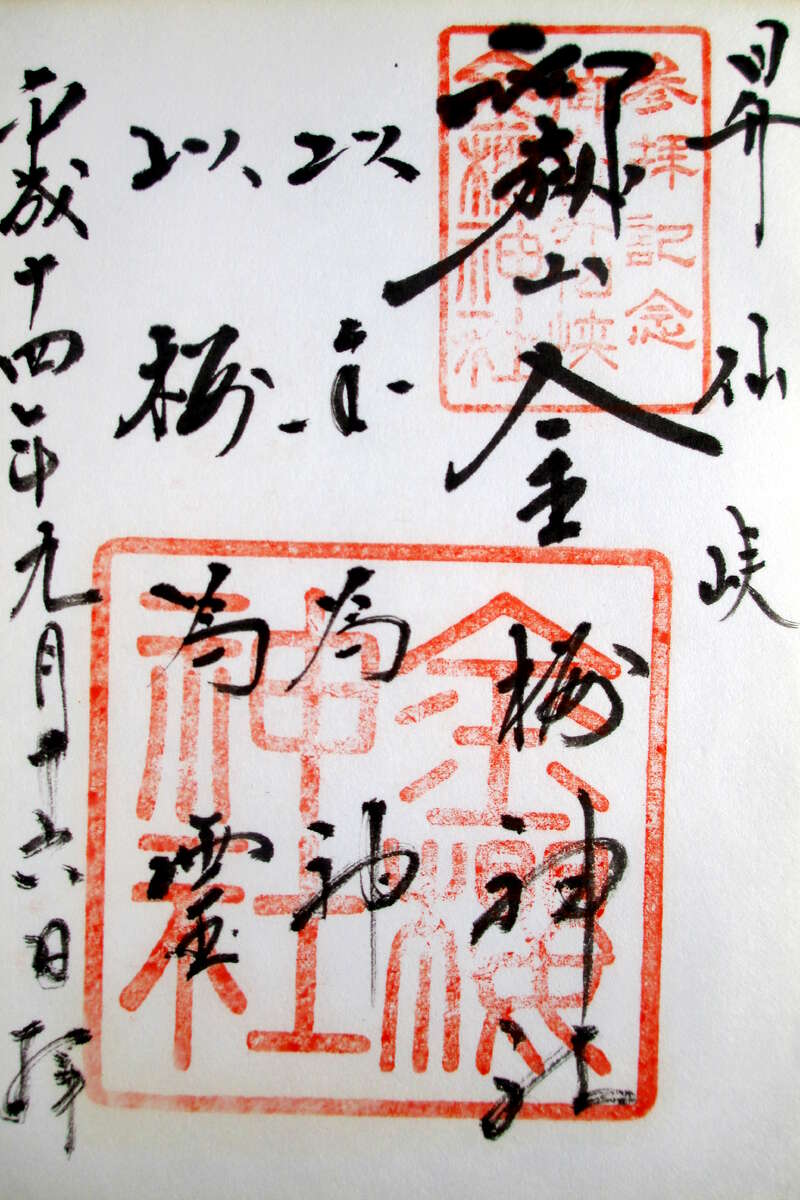 昇仙峡
御嶽山金櫻神社
以金為神
以櫻為霊
平成十四年九月十六日拝
参拝記念
御嶽昇仙峡
金櫻神社
金櫻
神社